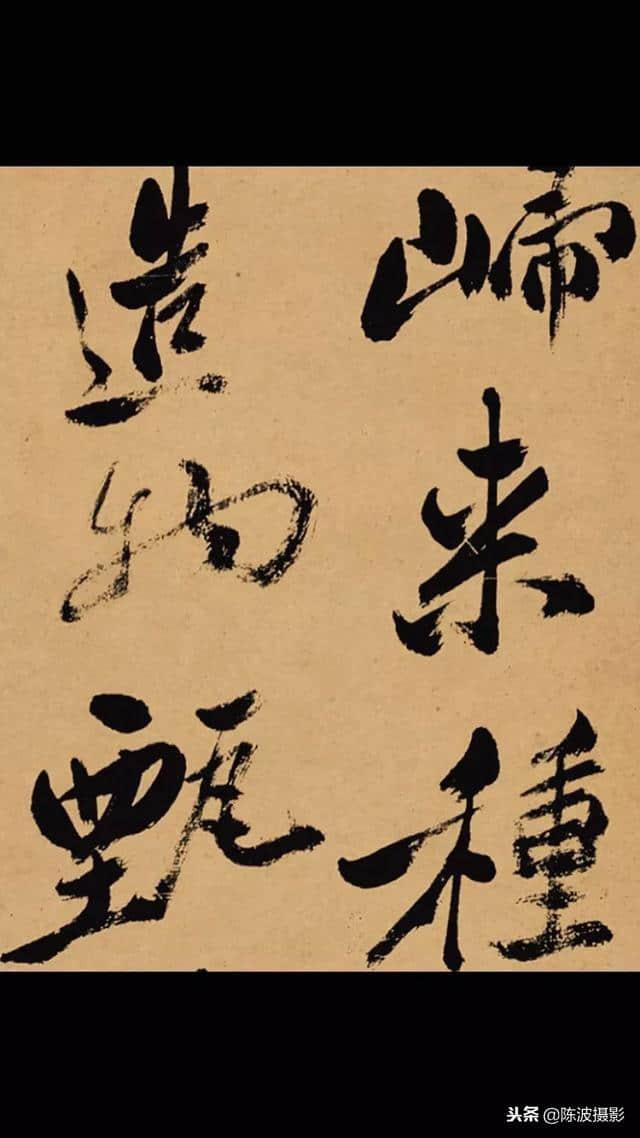 歸来種
造物甄
头条 @陈波摄影